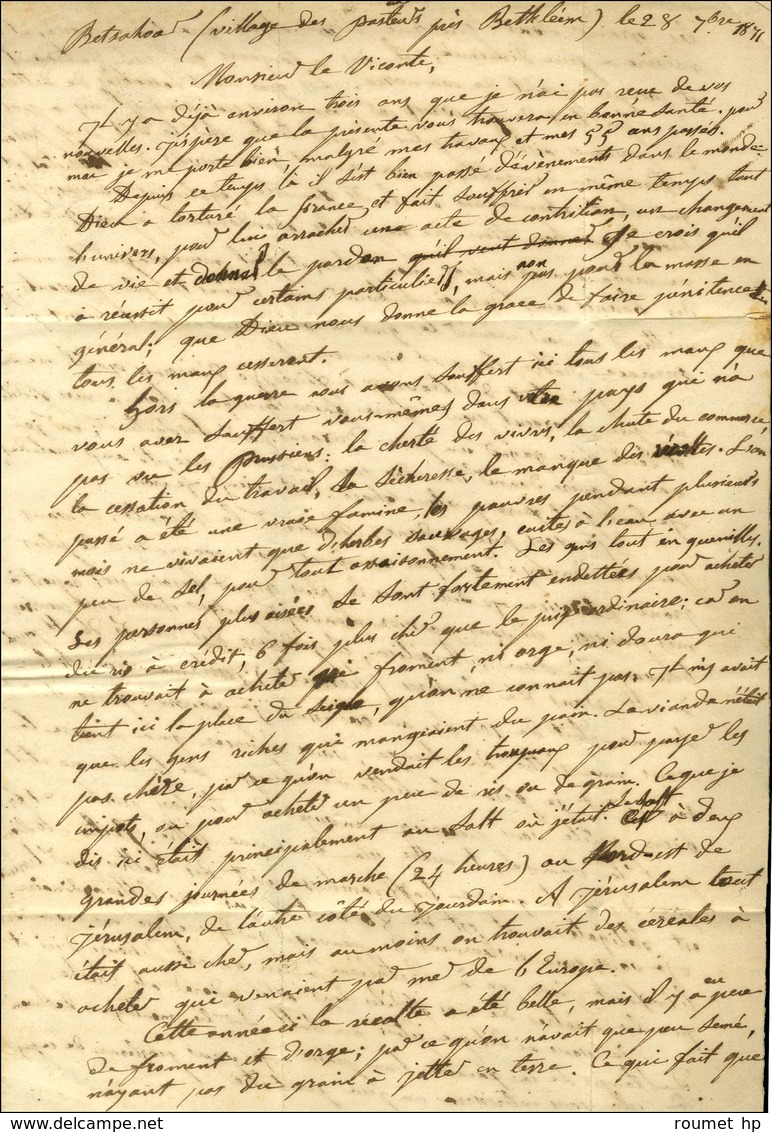 Betsahour (village des Pasteurs près Bethléem) le 28 7bre 1871
Monsieur le Viconte,
Il y a déjà environ trois ans que je n'ai pas reçu de vos
nouvelles. J'espère que la présente vous trouvera en bonne santé. pour
moi je me porte bien, malgré mes travaux et mes 55 ans passés.
Depuis ce temps là il s'est bien passé d'évènements dans le monde.
Dieu a torturé la france et fait souffrir en même temps tout
l'univers, pour lui arracher une acte de contrition, un changement
de vie et donner le pardon qu'il veut donner. Je crois qu'il
a réussit pour certains particuliers, mais non pas pour la masse en
général; que Dieu nous donne la grace de faire pénitence et
tous les maux cesseront.
Hors la guerre nous avons souffert ici tous les maux que
vous avez souffert vous-mêmes dans votre pays qui n'a
pas vu les prussiens: la cherté des vivres, la chute du commerce,
la cessation du travail, la sècheresse, le manque des récoltes. L'an
passé a été une vraie famine, les pauvres pendant plusieurs
mois ne vivaient que d'herbes sauvages, cuites à l'eau avec un
peu de sel, pour tout assaisonnement. Les gens tout en guenilles.
Les personnes plus aisées se sont fortement endettées pour acheter
du ris à crédit, 6 fois plus cher que le prix ordinaire; car on
ne trouvait à acheter ni froment, ni orge, ni doura qui
tient ici la place du seigle, qu'on ne connait pas. Il n'y avait
que les gens riches qui mangeaient du pain. La viande n'était
pas chère, par ce qu'on vendait les troupeaux pour payer les
impots, ou pour acheter un peu de ris ou de grain. Ce que je
dis ici était principalement au Salt où j'étais. le Salt est à deux
grandes journées de marche (24 heures) au Nord-est de
Jérusalem, de l'autre côté du Jourdain. A Jérusalem tout
était aussi cher, mais au moins on trouvait des céréales à
acheter qui venaient par mer de l'Europe.
Cette année-ci la récolte a été belle, mais il y a eu peu
de froment et d'orge; par ce qu'on n'avait que peu semé,
n'ayant pas du grain à jetter en terre. Ce qui fait que
roumet hp